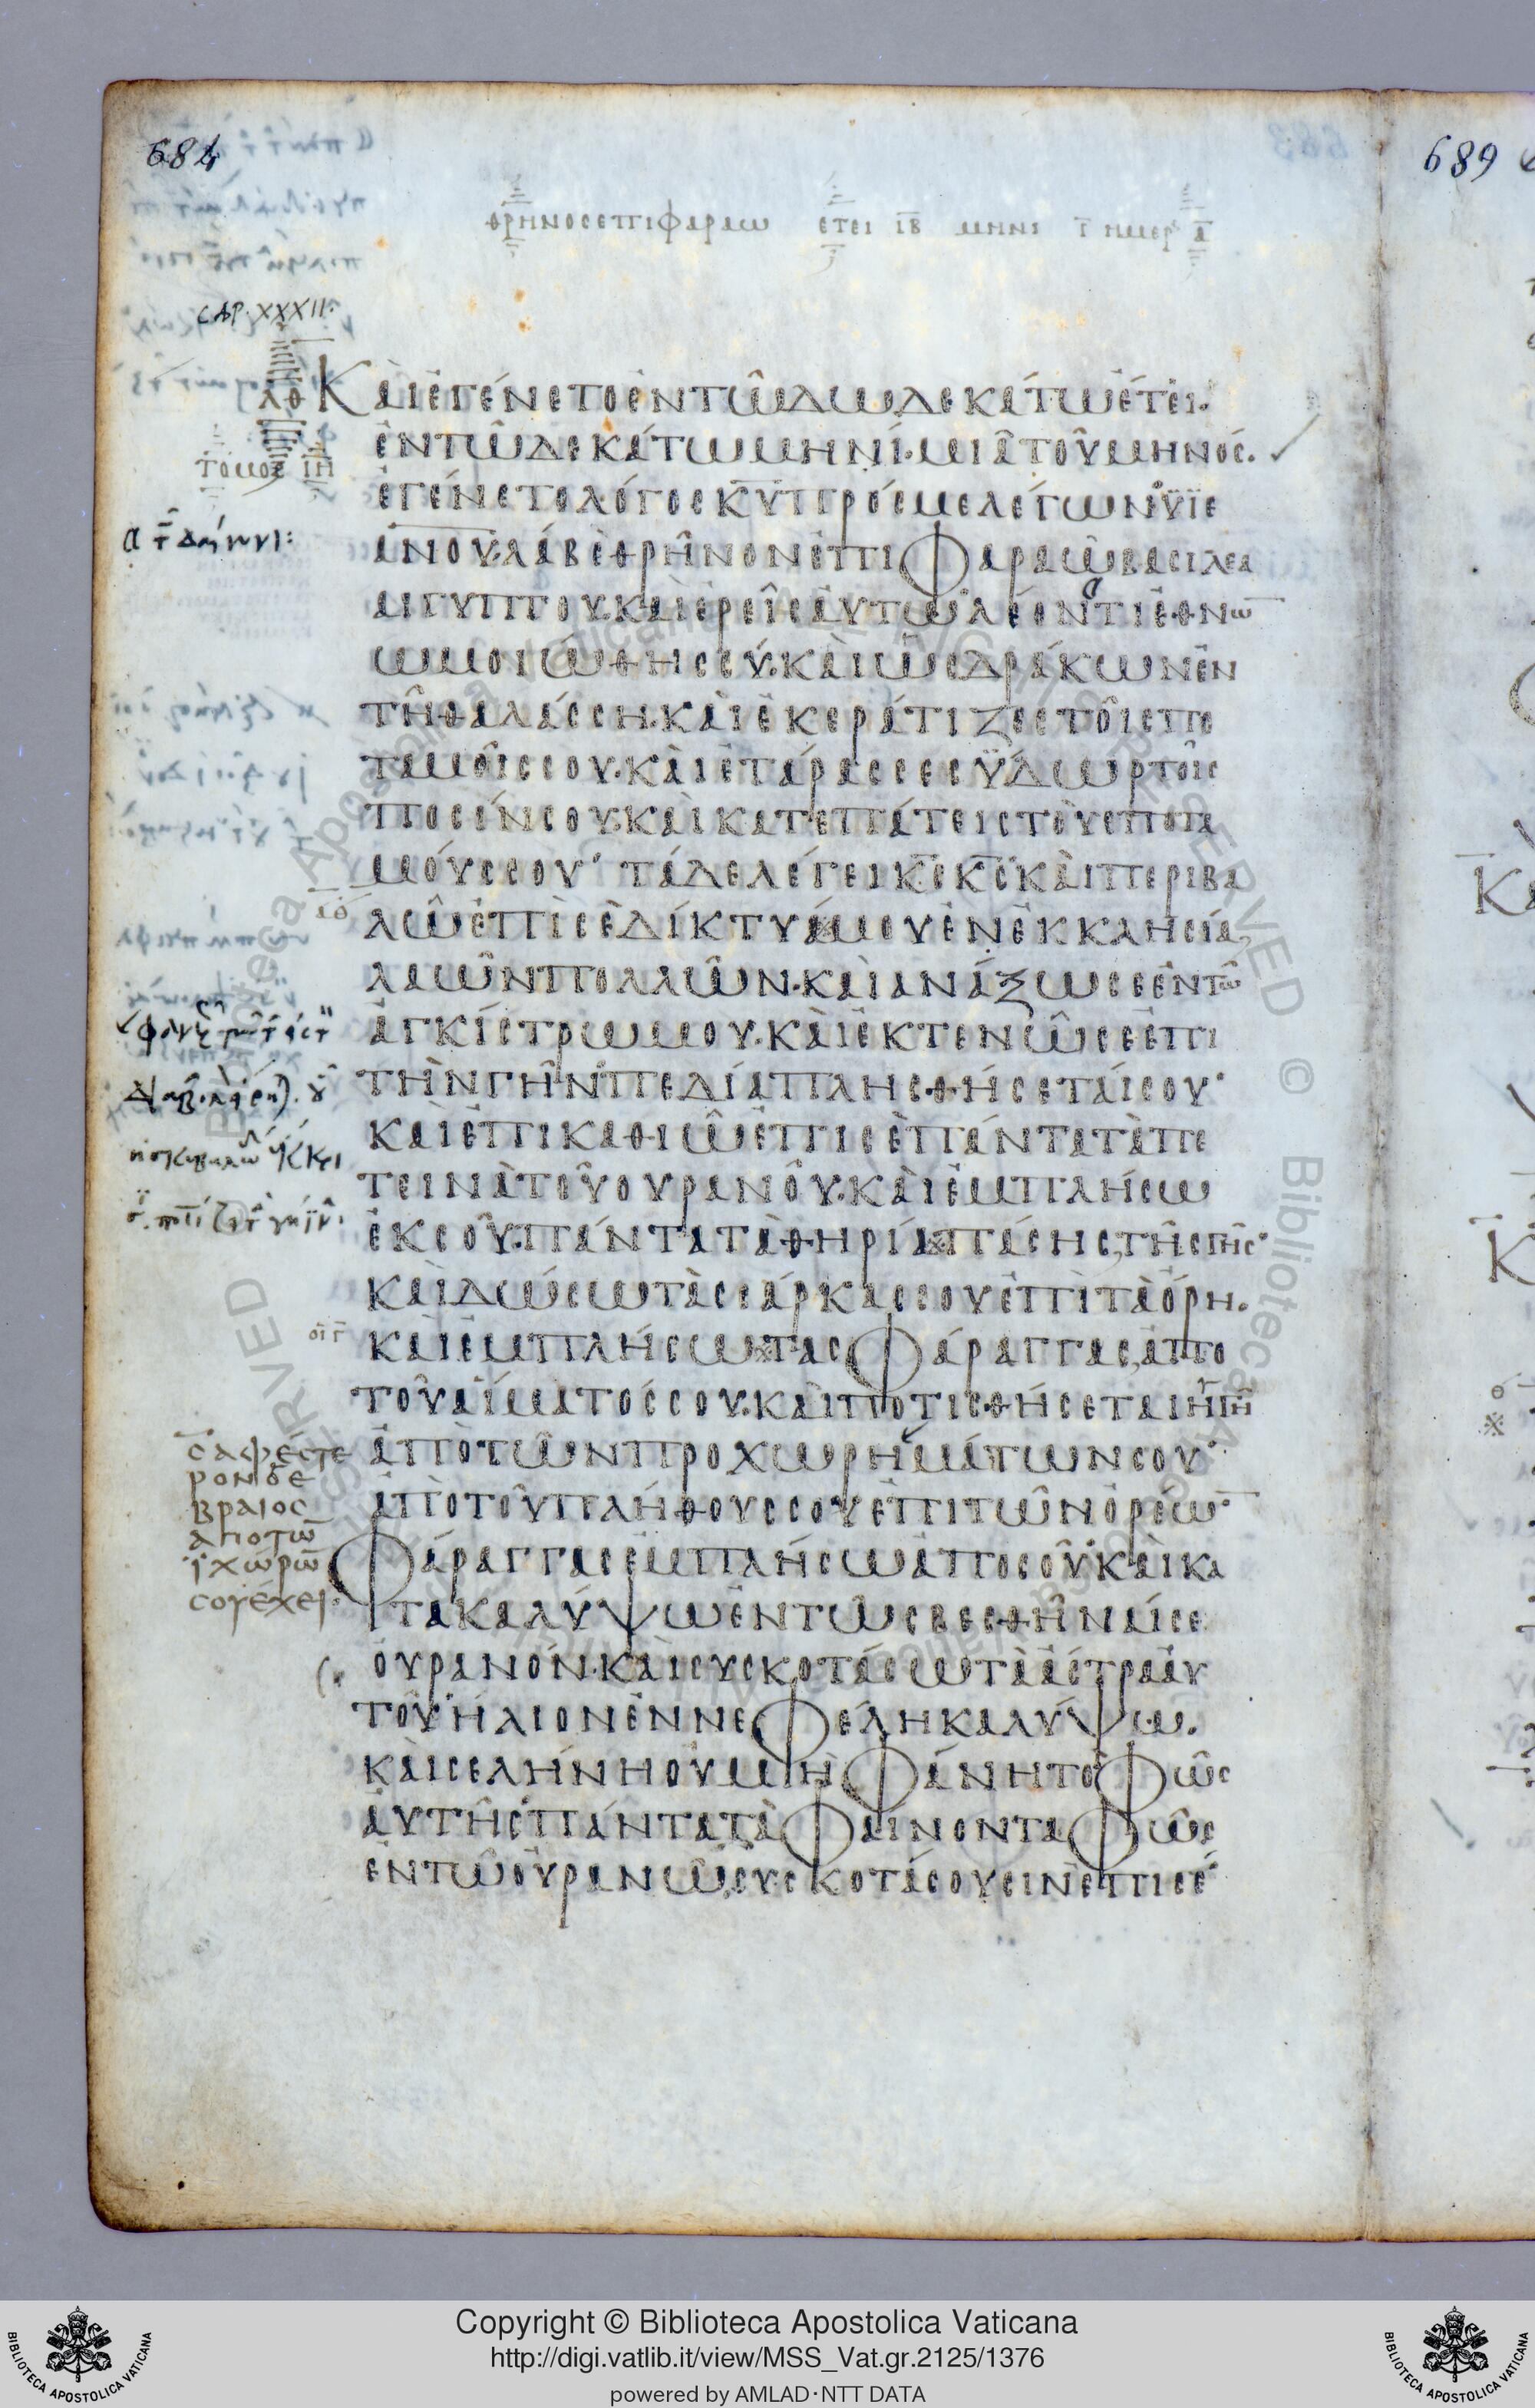 684
689
θρηνοσεπιφαραω ετει ιβ μηνι ι ημερ α
CAP. XXXII.
λθ
Κὰιἐγένετοἐντῶδωδεκάτωἔτει·
ἐντῶδεκάτωμηνί·μιᾶτοῦμηνόσ·
τόμοσ ιη
ἐγένετολόγοσκ̅υ̅πρόσμελέγων·ὑϊε
α̅ν̅ο̅υ̅·λάβεθρῆνονἐπιΦαραὼβασιλεα
αιγυπτου·κὰιἐρεῖσἀυτῶλέοντιἐθνω̅
ωμοιώθησσύ·κὰιὡσδράκωνἐν
τῆθαλάσση·κὰιἐκεράτιζεστοῖσπο
ταμοῖσσου·κὰιἐτάρασσεσὕδωρτοῖσ
ποσίνσου·κὰικατεπάτειστοὺσποτα
μούσσου· τάδελέγεικ̅σ̅κ̅σ̅κὰιπεριβα
λῶἐπὶσὲδίκτυάμουἐνἐκκλησία
λαῶνπολλῶν·κὰιανάξωσεἐντῶ
ἀγκίστρωμου·κὰιἐκτενῶσεἐπι
τὴνγῆν·πεδίαπλησθήσετάισου·
κὰιἐπικαθιῶἐπὶσὲπάντατὰπε
τεινὰτοῦουρανοῦ·κὰιἐμπλήσω
ἐκσοῦ·πάντατὰθηρίαπάσησ,τῆσγῆσ·
κὰιδώσωτὰσσάρκασσουἐπὶτὰόρη·
οι γ
κὰιἐμπλήσωτασΦάραγγασ,ἀπο
τοῦἅιματόσσου·κὰιποτισθήσεταιἡγῆ
ἀπὸτῶνπροχωρημάτωνσου·
ἀπὸτοῦπλήθουσσουἐπιτῶνὀρέω̅·
Φάραγγασἐμπλήσωἀποσοῦ·κὰικα
τακαλύψωἐντῶσβεσθῆνάισε
ουρανόν·κὰισυσκοτάσωτὰἄστραἀυ
τοῦ·ἥλιονἐννεΦέληκαλύψω·
κὰισελήνηουμὴΦάνητὸΦῶσ
ἀυτῆσ·πάντατὰΦάινονταΦῶσ
ἐντῶουρανῶσυσκοτάσουσινἐπισέ·
σαφέστε
ρονὁἑ
βραιοσ
αποτῶ̅
ϊχώρω̅
σουέχει·
Copyright © Biblioteca Apostolica Vaticana
http://digi.vatlib.it/view/MSS_Vat.gr.2125/1376
powered by AMLAD·NTT DATA
BIBLIOTECA APOSTOLICA VATICANA
BIBLIOTECA APOSTOLICA VATICANA